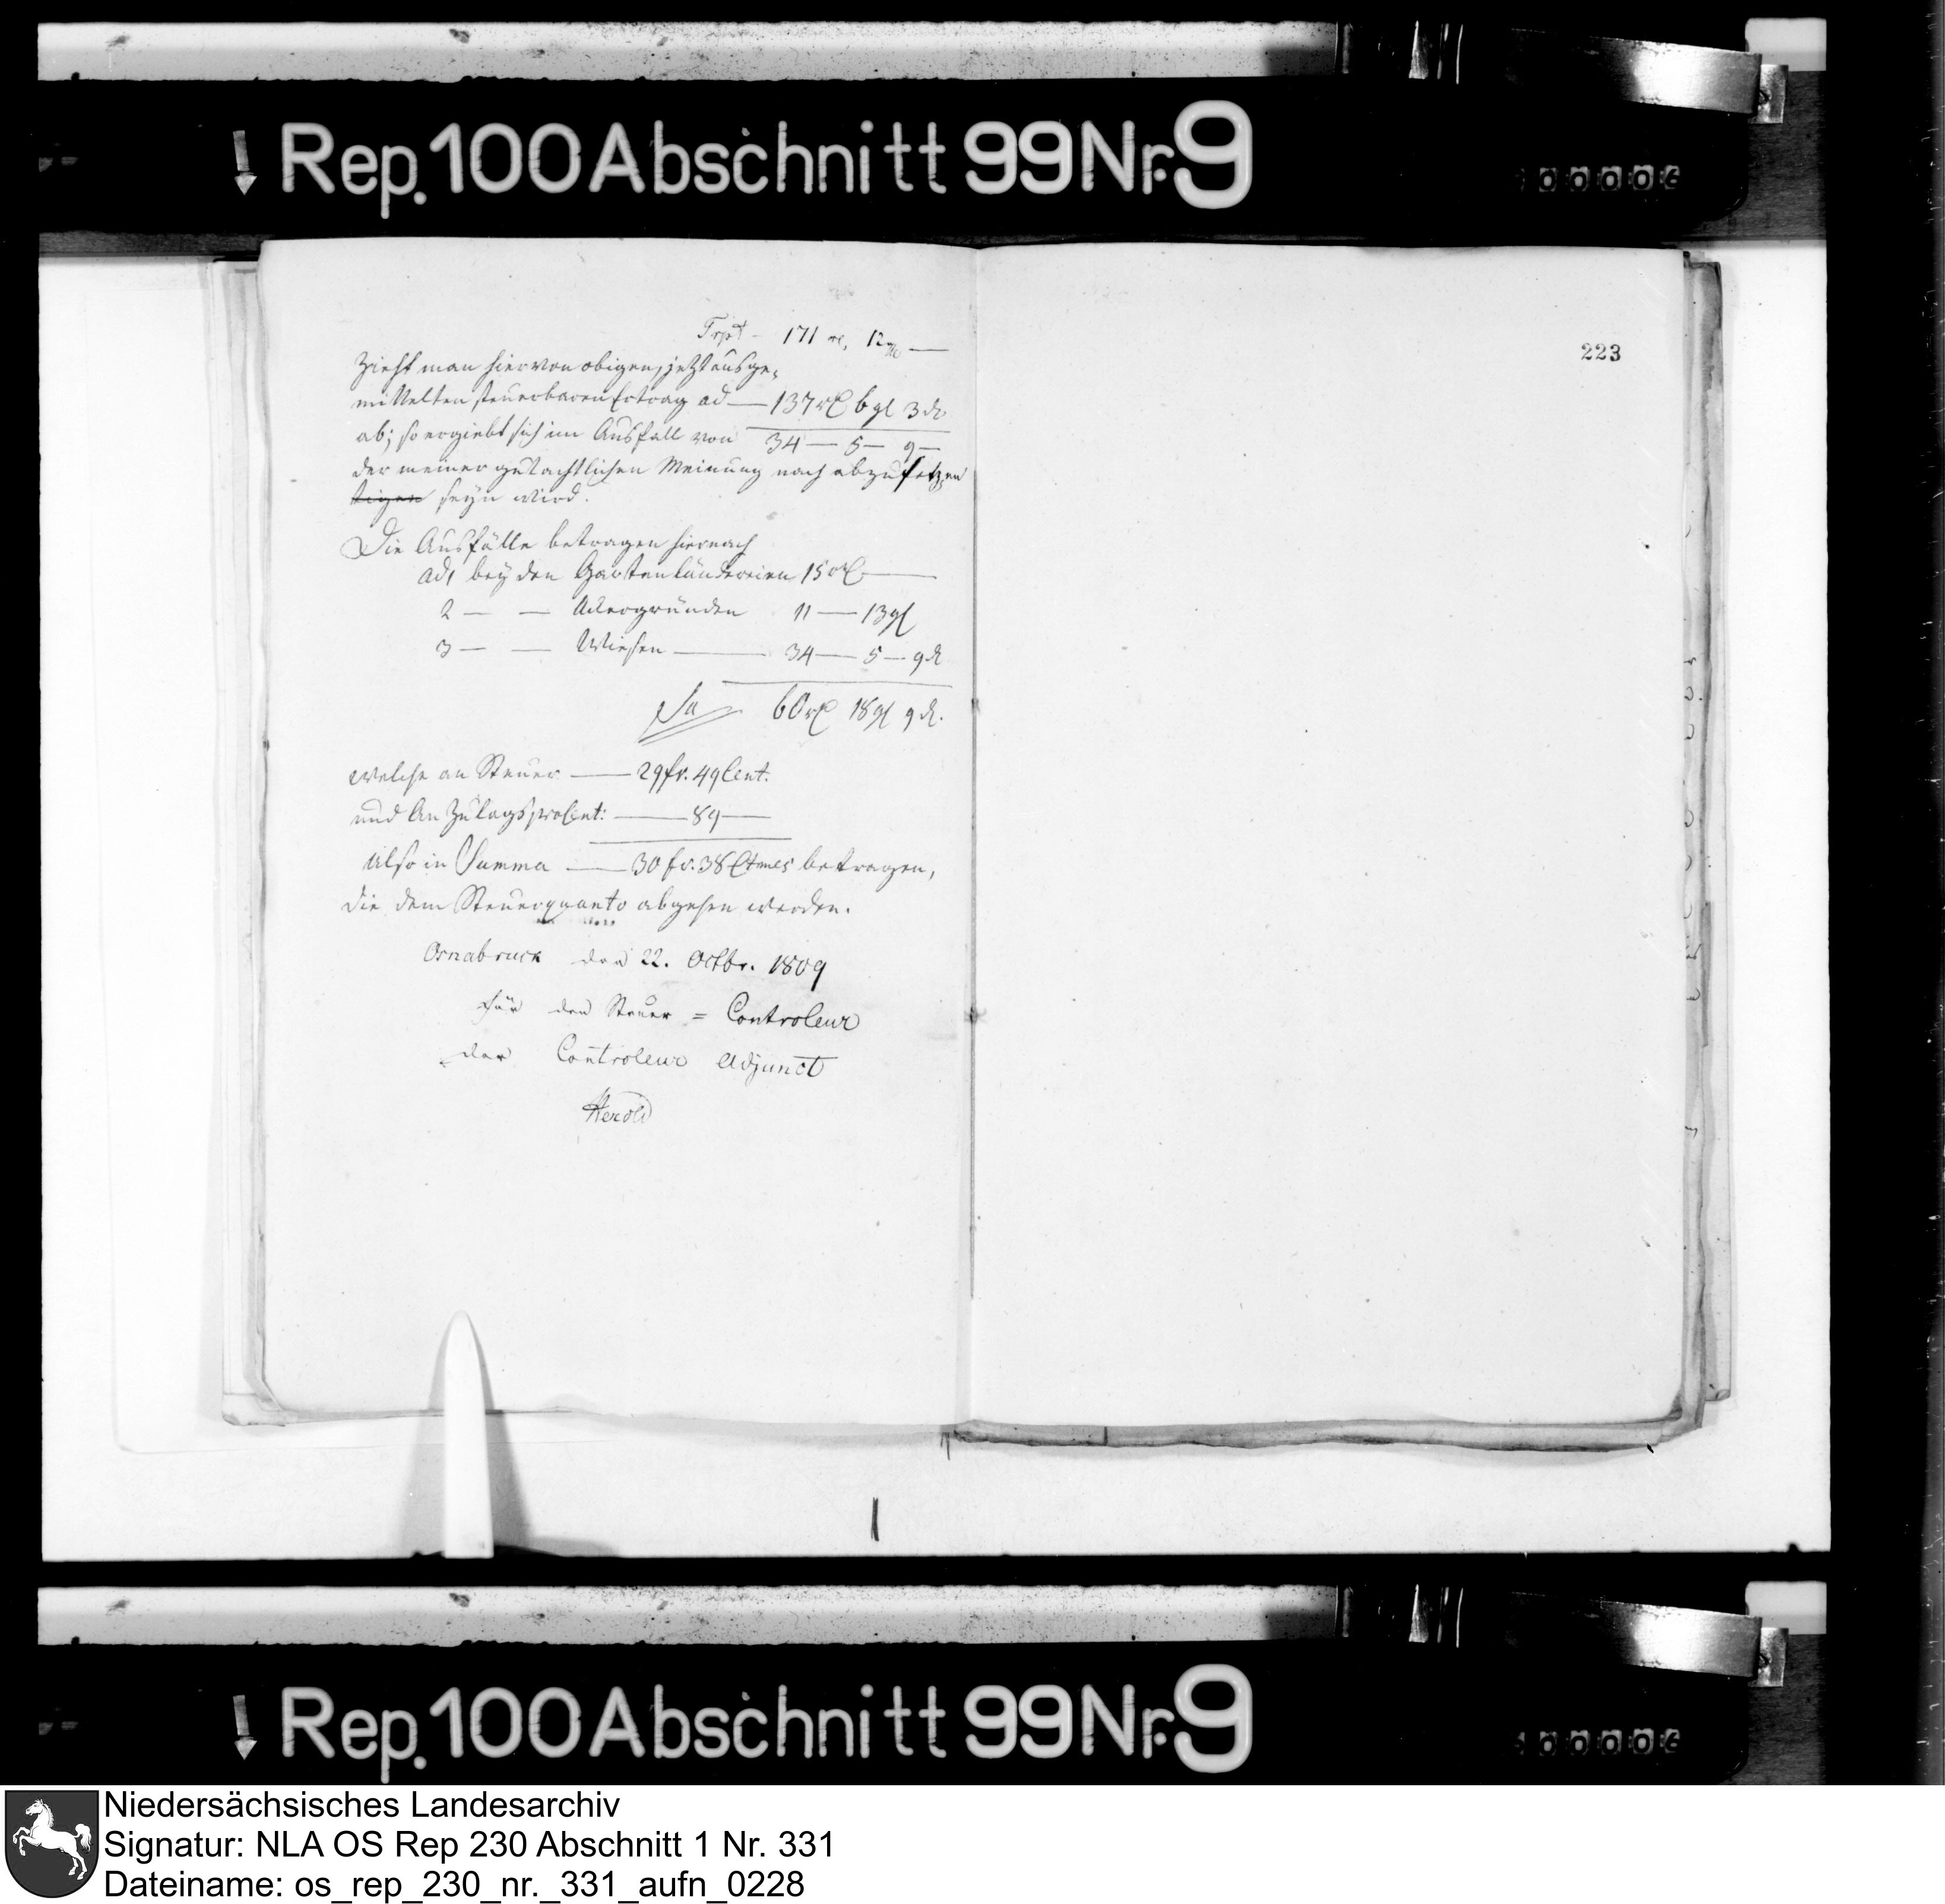 Rep. 100 Abschnitt 99 Nr. 9
Trpt - 171 rl, 12 gl —
223
Zieht man hiervon obigen, jetzt ausge-
mittelten steuerbaren Ertrag ad — 137 rl 6 gl 3 d
ab; so ergiebt sich im Ausfall von 34 — 5 — 9 —
der meiner gutachtlichen Meinung nach abzusetzen
seyn wird.
Die Ausfälle betragen hiernach
ad 1 bey den Gartenländereien 15 rl —
2 — — Ackergründen 11 — 13 gl
3 — — Wiesen — 34 — 5 — 9 d
Sa 60 rl 18 gl 9 d.
welche an Steuer — 29 fr. 49 Cent.
und An Zulagsprocent: — 89 —
Also in Summa — 30 fr. 38 Ctmes betragen,
die dem Steuerquanto abgehen werden.
Osnabruck den 22. Octbr. 1809
für den Steuer = Controleur
der Controleur Adjunct
Herold
Rep. 100 Abschnitt 99 Nr. 9
Niedersächsisches Landesarchiv
Signatur: NLA OS Rep 230 Abschnitt 1 Nr. 331
Dateiname: os_rep_230_nr._331_aufn_0228